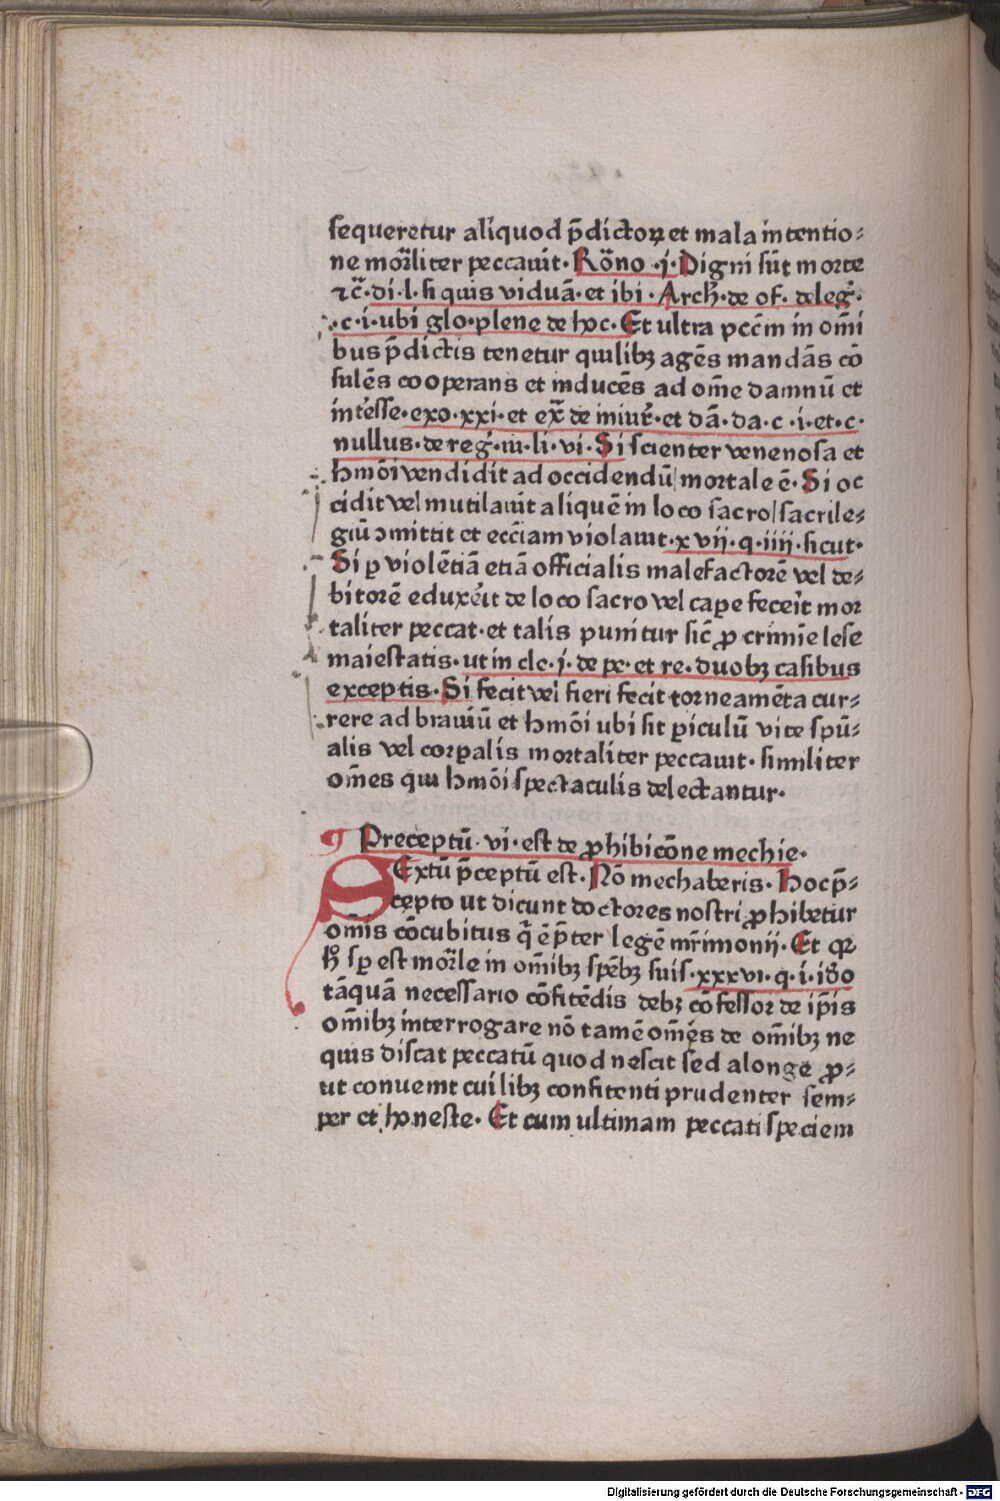 sequeretur aliquod p̄dictoꝝ et mala intentio⸗
ne mor̄liter peccauit· Rōno ·j· Digni sūt morte
⁊c̄· di·l· si quis viduā· et ibi · Arch̄· de of· deleḡ·
·c·i· ubi glo·plene de hoc· Et ultra pcc̄m in om̄i
bus p̄dictis tenetur quilibꝫ agēs mandās cō
sulēs cooperans et inducēs ad om̄e damnū et
int̄esse· exo·xxi· et ex̄ de iniur̄· et dā· da· c ·i· et·c·
nullus· de reḡ· iu· li· vi· Si scienter venenosa et
hmōi vendidit ad occidendū mortale ē· Si oc
cidit vel mutilauit aliquē in loco sacro sacrile⸗
giū ↄmittit et ecc̄iam violauit· xvii·q·iiii· sicut·
Si ꝑ violētiā etiā officialis malefactorē vel de⸗
bitorē eduxēit de loco sacro vel caꝑe fecēit mor
taliter peccat· et talis punitur sic̄ ꝓ crimīe lese
maiestatis· ut in cle· j· de pe· et re· duobꝫ casibus
exceptis· Si fecit vel fieri fecit torneamēta cur⸗
rere ad brauiū et hmōi ubi sit ꝑiculū vite spū⸗
alis vel corꝑalis mortaliter peccauit· similiter
om̄es qui hmōi spectaculis delectantur·
¶ Preceptū· vi· est de ꝓhibicōne mechie·
SExtū p̄ceptū est· Nō mechaberis· Hoc p̄⸗
cepto ut dicunt doctores nostri ꝓhibetur
om̄is cōcubitus q̄ ē p̄ter legē mr̄imonij· Et qꝛ
h̄ sꝑ est mor̄le in om̄ibꝫ spēbꝫ suis· xxxvi·q·i· id̄o
tāquā necessario cōfitēdis debꝫ cōfessor de ip̄is
om̄ibꝫ interrogare nō tamē om̄es de om̄ibꝫ ne
quis discat peccatū quod nescit sed a longe ꝓ⸗
ut conuenit cuilibꝫ confitenti prudenter sem⸗
per et honeste· Et cum ultimam peccati speciem
Digitalisierung gefördert durch die Deutsche Forschungsgemeinschaft - DFG